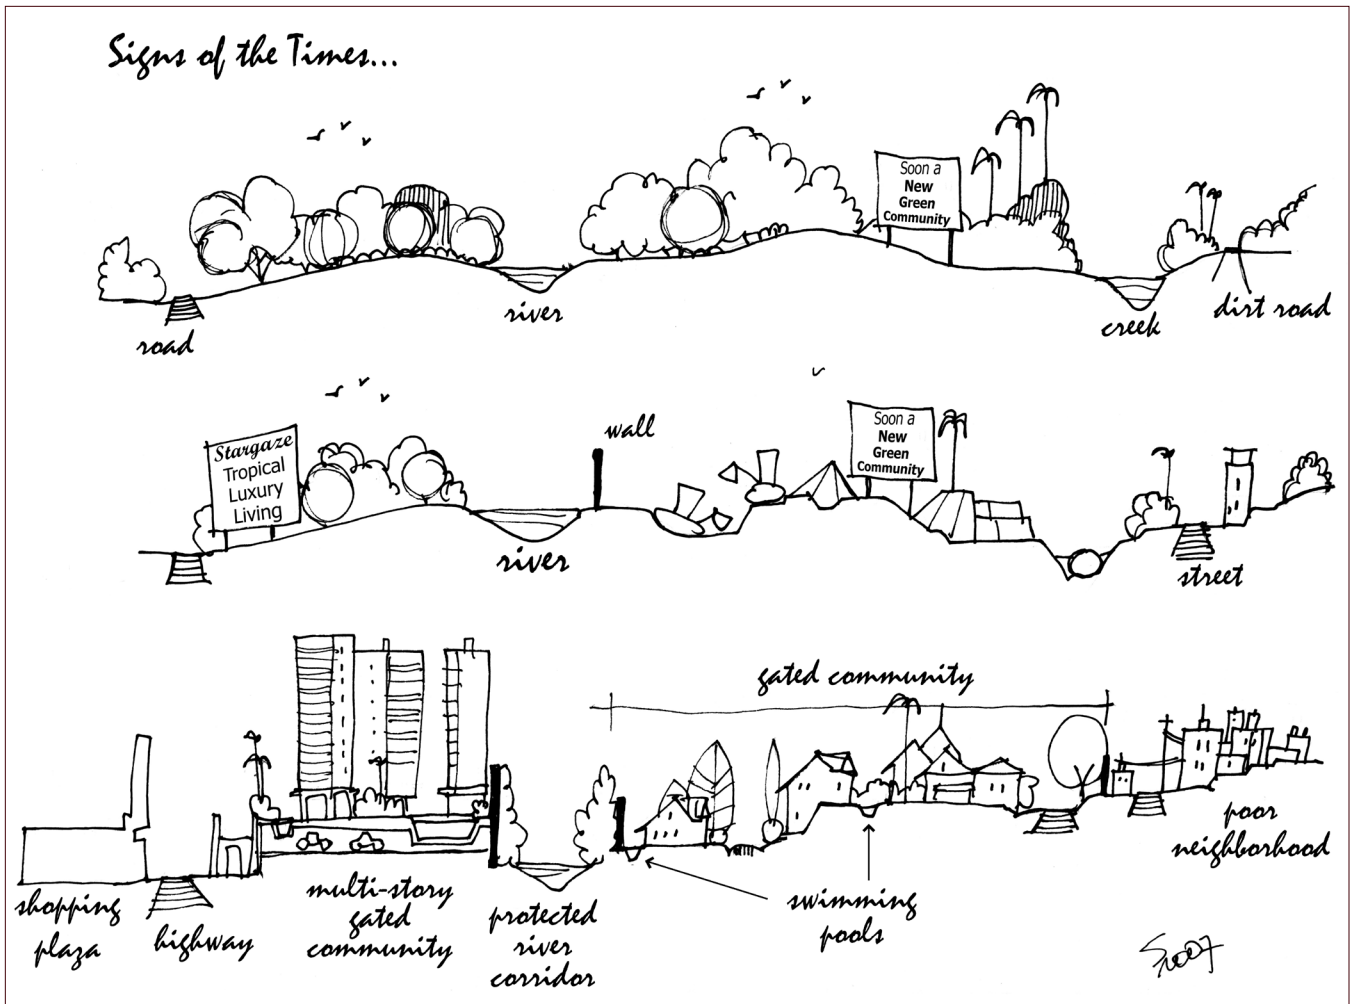 Signs of the Times...
Soon a
New
Green
Community
road
river
creek
dirt road
Stargaze
Tropical
Luxury
Living
wall
Soon a
New
Green
Community
river
street
gated community
shopping
plaza
highway
multi-story
gated
community
protected
river
corridor
swimming
pools
poor
neighborhood